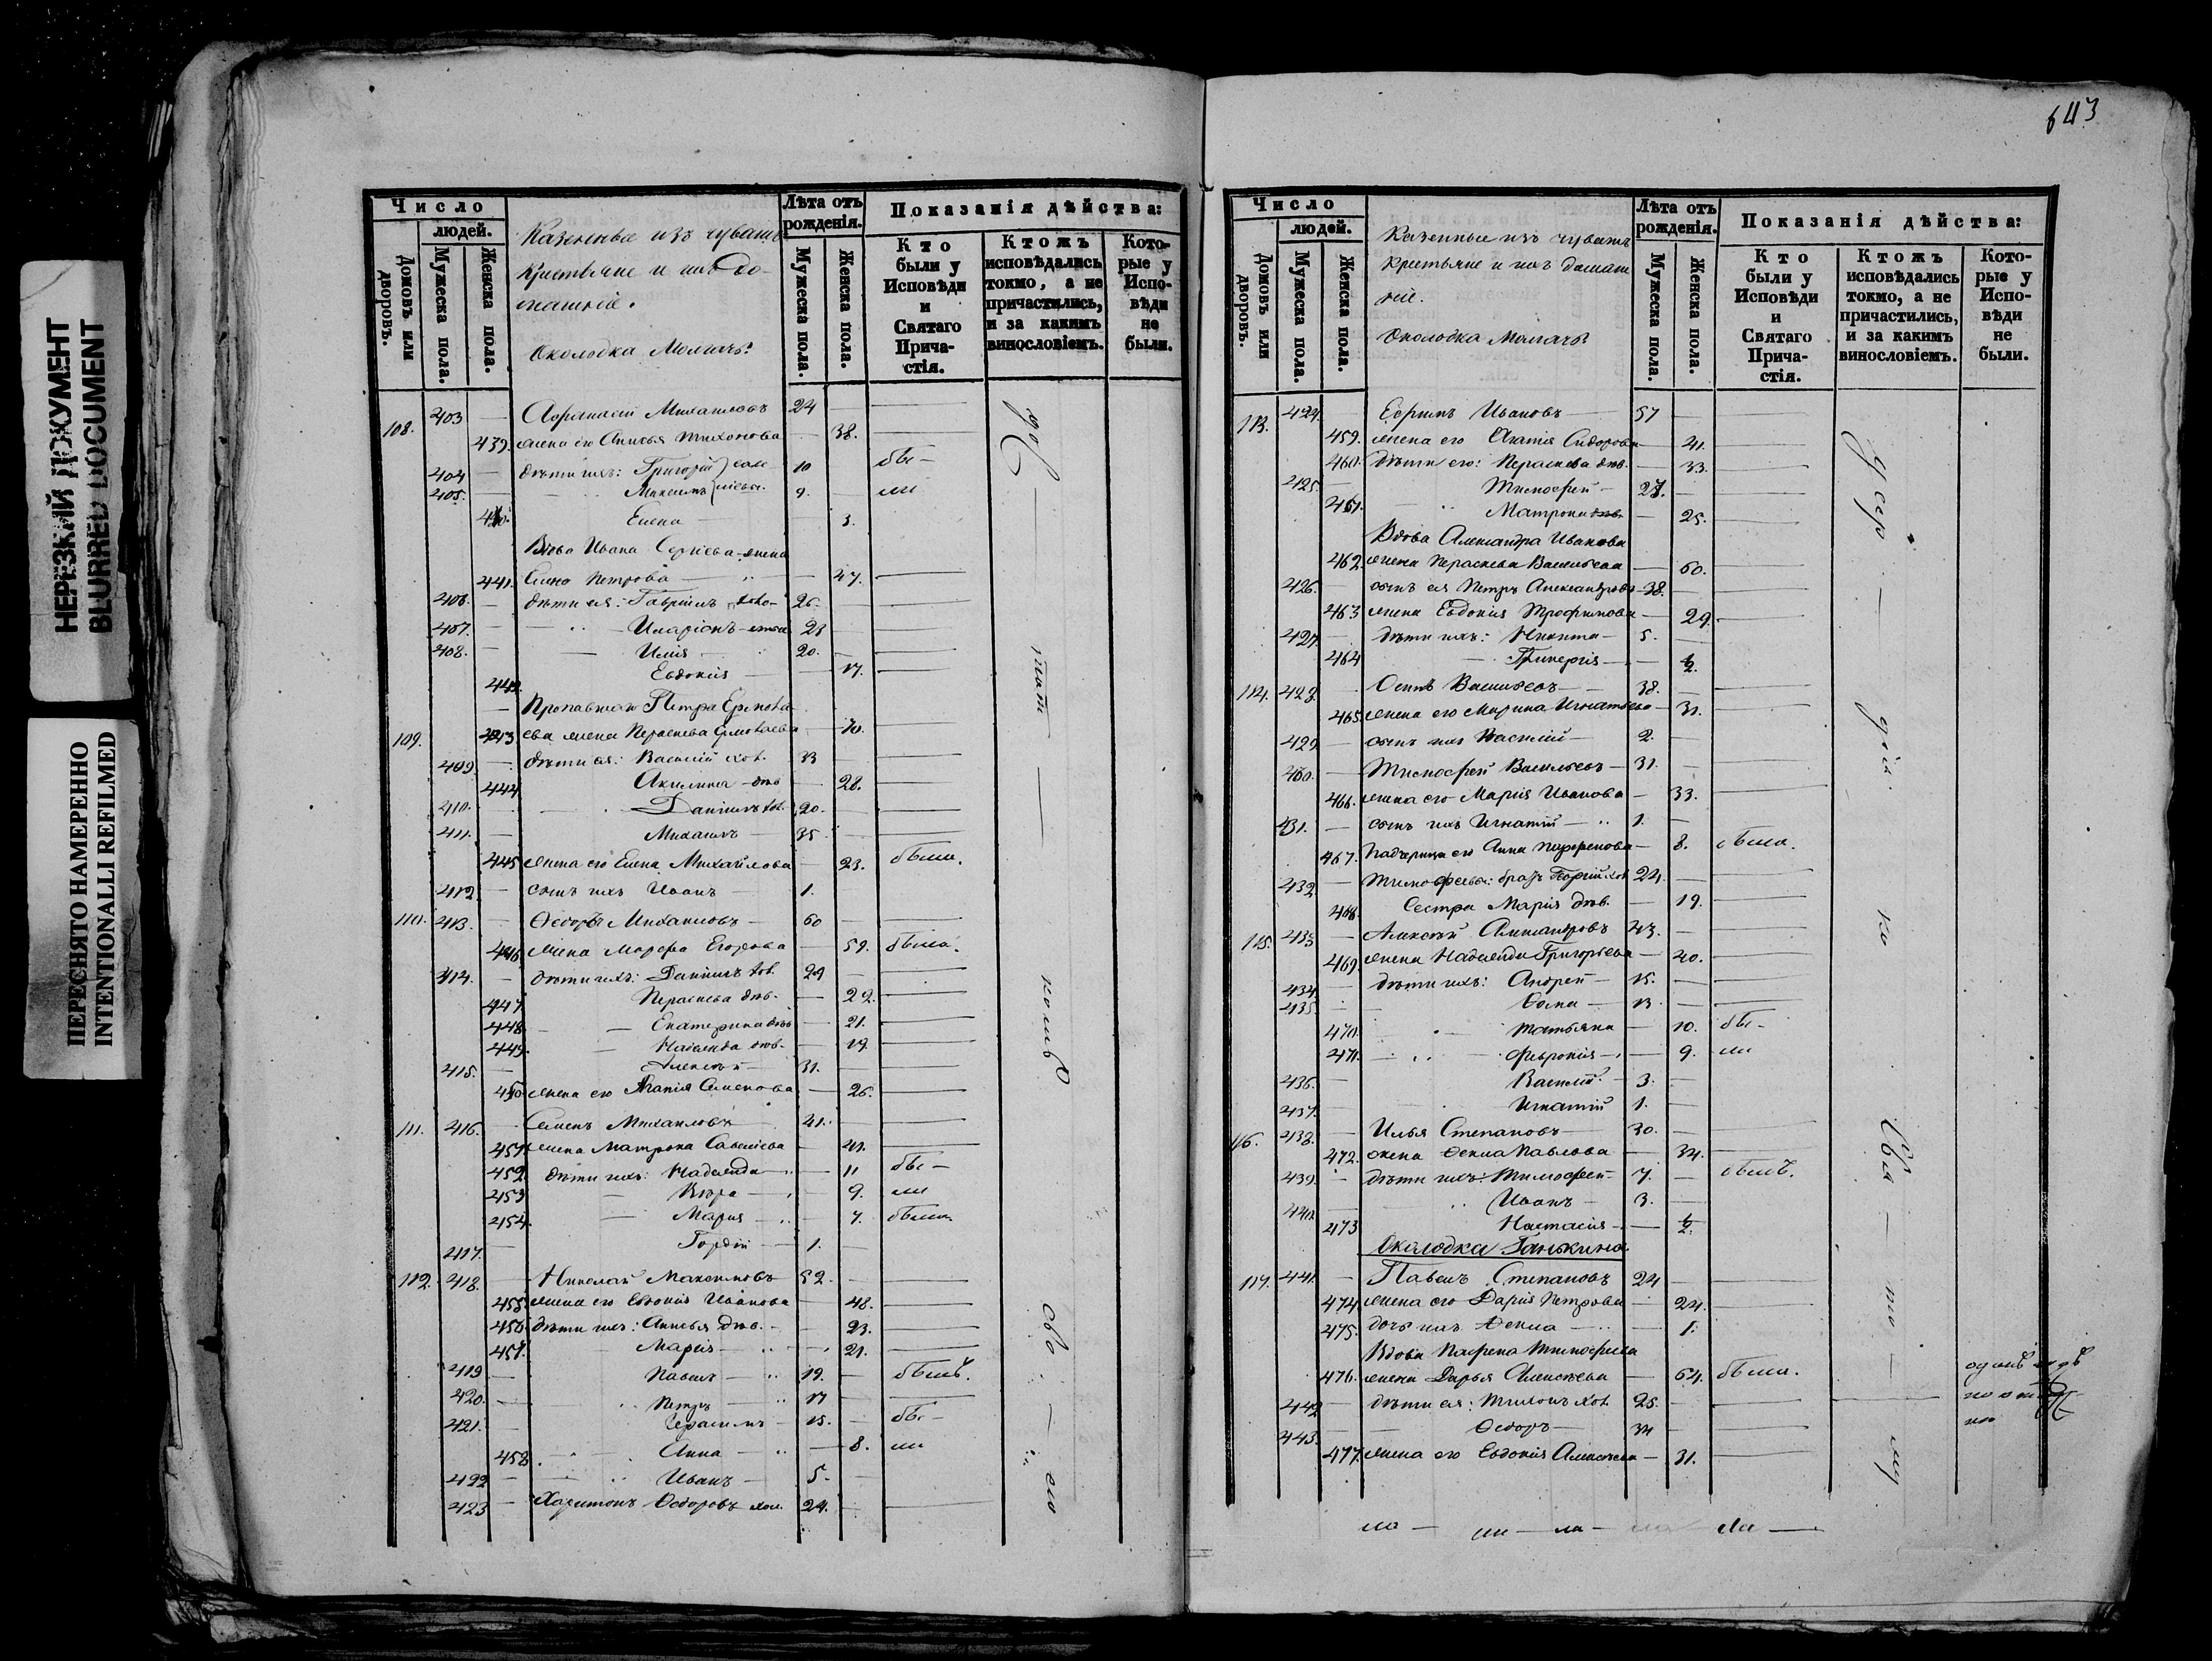 НЕРЕЗКИЙ ДОКУМЕНТ
BLURRED DOCUMENT
ПЕРЕСНЯТО НАМЕРЕННО
INTENTIONALLI REFILMED
Число
людей.
Домовъ или дворовъ.
Мужеска пола.
Женска пола.
Казенные изъ чувашъ
крестьяне и ихъ до-
машніе.
Околодка Молгачъ.
Лѣта отъ рожденія.
Мужеска пола.
Женска пола.
Показанія дѣйства:
Кто были у Исповѣди и Святаго Прича-стія.
Ктожъ исповѣдались токмо, а не причастились, и за какимъ винословіемъ.
Кото-рые у Испо-вѣди не были.
108. 403 Аѳанасій Михайловъ 24
439. жена его Анисья Тихонова 38.
404 дѣти ихъ: Григорій 10 бы-
405. Максимъ 9. ли
440. Елена 3.
Вдова Ивана Сергѣева жена
441. Петрова 47.
406. дѣти ея: Гавріилъ 26.
407. Иларіонъ 23
408. Илія 20.
442. Евдокія 17.
Пропавшаго Петра
109. 443 жена Параскева 70.
409. дѣти ея: Василій хол. 33
444 Акилина дѣв 28.
410. Даніилъ хол. 20.
411. Михаилъ 35
445 жена его Елена Михайлова 23. была.
412. сынъ ихъ Иванъ 1.
110. 413. Ѳедоръ Михайловъ 60
446. жена Марѳа Егорова 59. была.
414. дѣти ихъ: Даніилъ хол. 29
447. Параскева дѣв. 22.
448. Екатерина дѣв 21.
449. Надежда дѣв. 19.
415. Алексѣй 31.
450. жена его Агапія Семенова 26.
111. 416. Семенъ Михайловъ 41.
451. жена Матрона Савельева 41.
452. дѣти ихъ: Надежда 11 бы-
453 Вѣра 9. ли
454. Марія 7. была.
417. Гордій 1.
112. 418. Николай Максимовъ 52.
455. жена его Евдокія Иванова 48.
456. дѣти ихъ: Анисья дѣв. 23.
457. Марія 21.
419 Павелъ 19. былъ.
420. Петръ 17
421. Герасимъ 15. бы-
458. Анна 8. ли
422 Иванъ 5.
423 Харитонъ Ѳедоровъ хол. 24.
643
Число
людей.
Домовъ или дворовъ.
Мужеска пола.
Женска пола.
Казенные изъ чувашъ
крестьяне и ихъ домаш
ніе.
Околодка Молгачъ
Лѣта отъ рожденія.
Мужеска пола.
Женска пола.
Показанія дѣйства:
Кто были у Исповѣди и Святаго Прича-стія.
Ктожъ исповѣдались токмо, а не причастились, и за какимъ винословіемъ.
Кото-рые у Испо-вѣди не были.
113. 424. Ефимъ Ивановъ 57
459. жена его Агапія Сидорова 41.
460. дѣти его: Параскева дѣв. 33.
425. Тимофей 27.
461. Матрона дѣв. 25.
Вдова Александра Иванова
462. жена Параскева Васильева 60.
426. сынъ ея Петръ Александровъ 38.
463 жена Евдокія Трофимова 29.
427. дѣти ихъ: Никита 5.
464 Гликерія ½.
114. 428. Осипъ Васильевъ 38.
465. жена его Марина Игнатьева 31.
429. сынъ ихъ Василій 2.
430. Тимофей Васильевъ 31.
466. жена его Марія Иванова 33.
431. сынъ ихъ Игнатій 1.
467. Падчерица его Анна 8. была.
432 Тимофеевъ братъ хол 24.
468. Сестра Марія дѣв. 19.
115. 433 Алексѣй Александровъ 43.
469. жена Надежда Григорьева 40.
434. дѣти ихъ: Андрей 15.
435. Ѳома 13
470. Татьяна 10. бы-
471. Февронія 9. ли
436. Василій 3.
437. Игнатій 1.
116. 438. Илья Степановъ 30.
472. жена Ѳекла Павлова 34.
439. дѣти ихъ: Тимофей 7. былъ.
440. Иванъ 3.
473 Настасія ½.
Околодка Ганькина
117. 441. Павелъ Степановъ 24
474. жена его Дарія Петрова 24.
475. дочь ихъ Ѳекла 1.
Вдова
476. жена Дарья Алексѣева 64. была.
442 дѣти ея: Тихонъ хол. 25.
443. Ѳедоръ 34
477. жена его Евдокія Алексѣева 31.